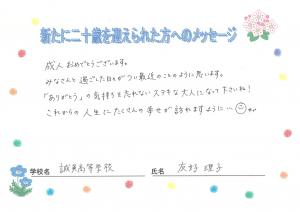 新たに二十歳を迎えられた方へのメッセージ
成人おめでとうございます。
みなさんと過ごした日々がつい最近のことのように思います。
「ありがとう」の気持ちを忘れないステキな大人になって下さいね！
これからの人生にたくさんの幸せが訪れますように…
学校名 誠真高等学校 氏名 友好 理子